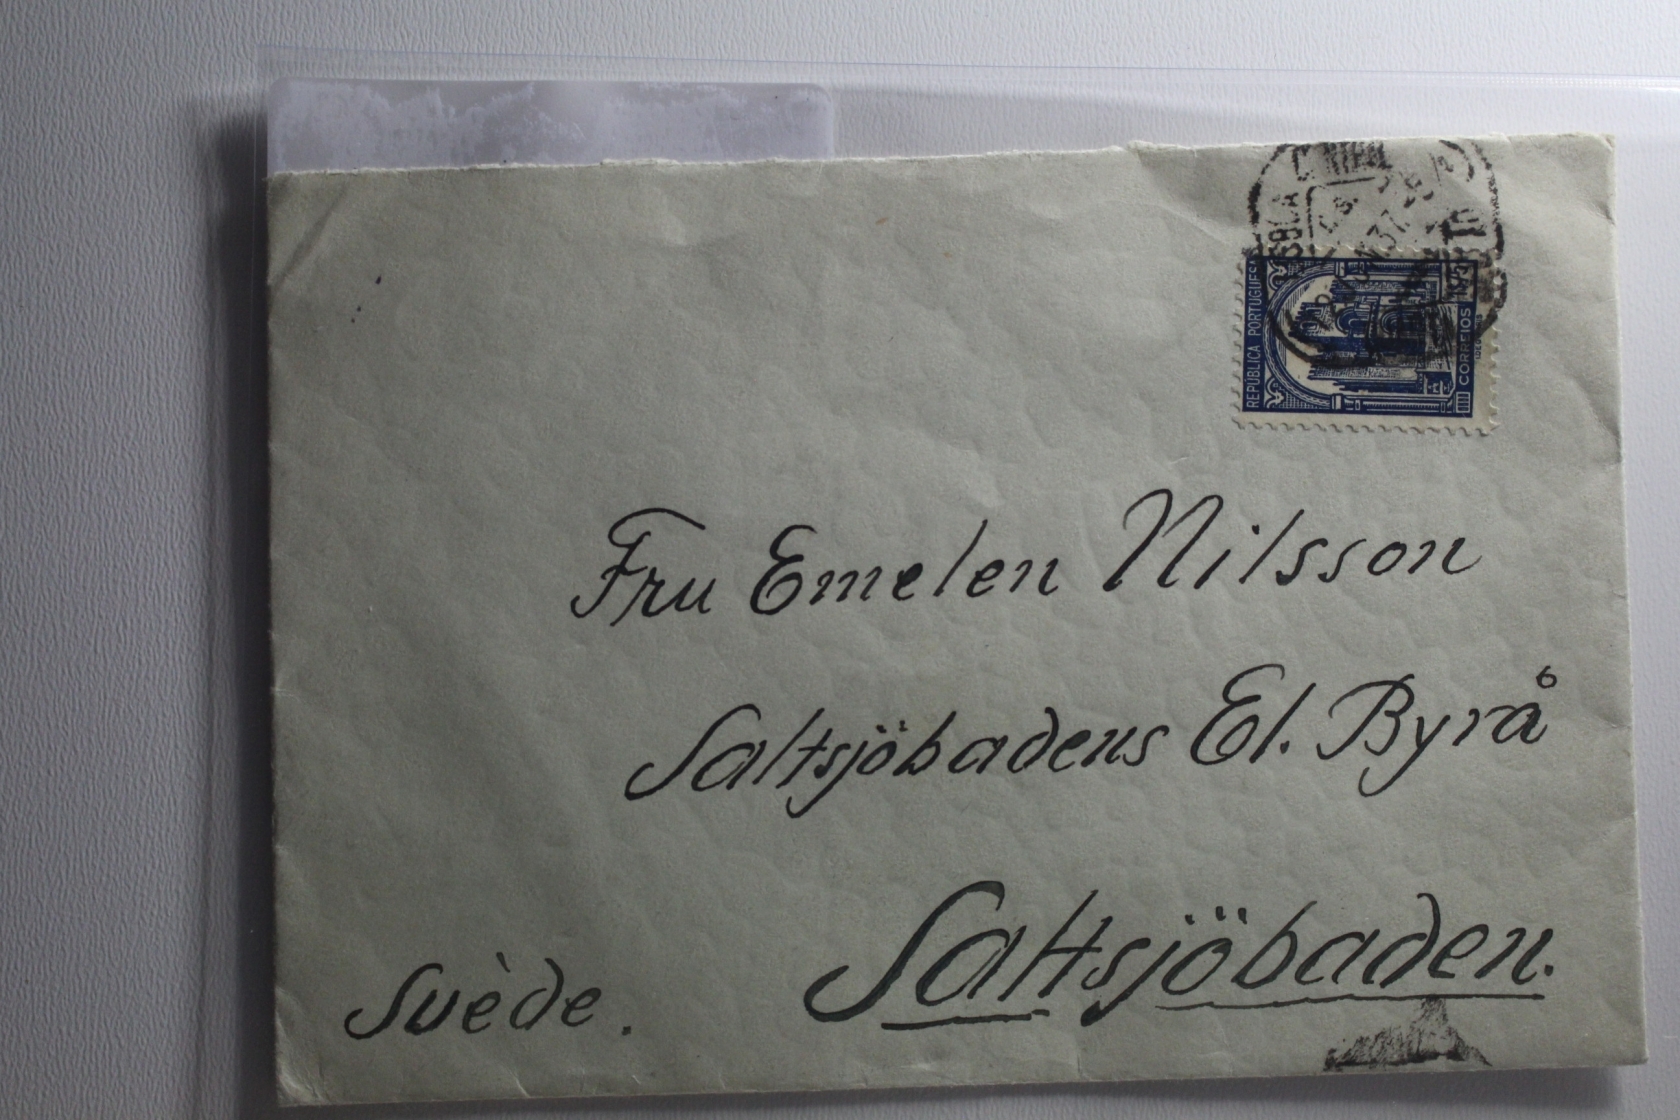 LISBOA
REPUBLICA PORTUGUESA
CORREIOS
Fru Emelen Nilsson
Saltsjöbadens El. Byrå
Saltsjöbaden.
Suède.